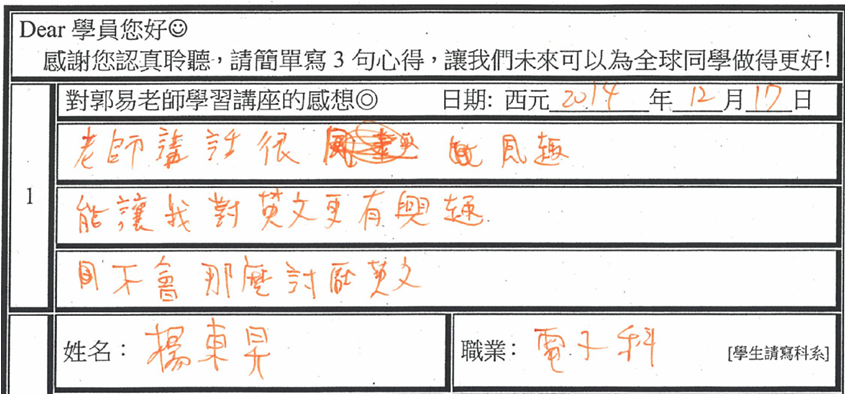 Dear 學員您好☺
感謝您認真聆聽，請簡單寫 3 句心得，讓我們未來可以為全球同學做得更好!
對郭易老師學習講座的感想◎ 日期: 西元 2014 年 12 月 17 日
1
老師講話很 風趣
能讓我對英文更有興趣
不會那麼討厭英文
姓名： 楊東昇 職業： 電子科 [學生請寫科系]